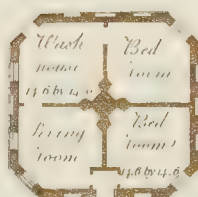 Wash
house
14.6 by 14
Bed
room
Living
room
Bed
room
14.6 by 14.6